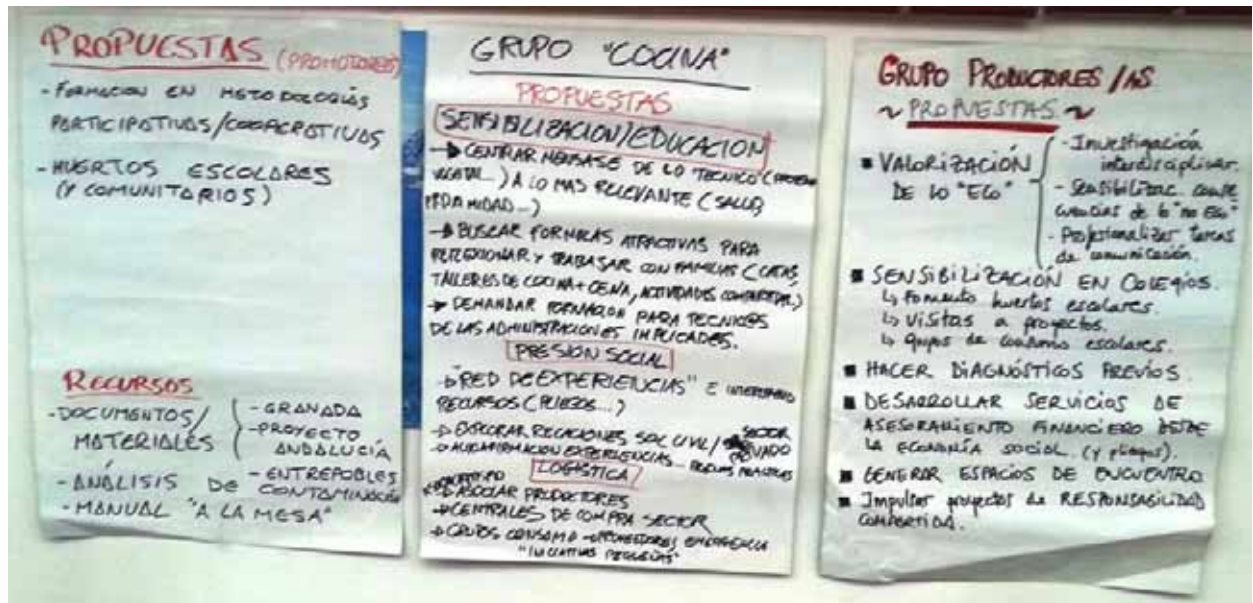 PROPUESTAS (PROMOTORES)
- FORMACION EN METODOLOGÍAS
PARTICIPATIVAS/COOPERATIVAS
- HUERTOS ESCOLARES
(Y COMUNITARIOS)
RECURSOS
- DOCUMENTOS/
MATERIALES
- GRANADA
- PROYECTO
ANDALUCÍA
- ENTREPOBLES
- ANÁLISIS DE CONTAMINACIÓN
- MANUAL "A LA MESA"
GRUPO "COCINA"
PROPUESTAS
SENSIBILIZACION/EDUCACION
→ CENTRAR MENSAJE DE LO TECNICO (PROTEINA
VEGETAL...) A LO MAS RELEVANTE (SALUD,
...)
→ BUSCAR FORMULAS ATRACTIVAS PARA
REFLEXIONAR Y TRABAJAR CON FAMILIAS (CATAS,
TALLERES DE COCINA + CENA, ACTIVIDADES COMPARTIDAS.)
→ DEMANDAR FORMACION PARA TECNIC@S
DE LAS ADMINISTRACIONES IMPLICADES.
PRESION SOCIAL
→ "RED DE EXPERIENCIAS" E INTERCAMBIO
RECURSOS (PLIEGOS...)
→ EXPLORAR RELACIONES SOC CIVIL/ SECTOR
PRIVADO
→ EXPERIENCIAS... BUENAS PRACTICAS
LOGISTICA
→ ASOCIAR PRODUCTORES
→ CENTRALES DE COMPRA SECTOR
→ GRUPOS CONSUMO - PROVEEDORES EMERGENCIA
"INICIATIVAS PEQUEÑAS"
GRUPO PRODUCTORES/AS
~ PROPUESTAS ~
■ VALORIZACIÓN
DE LO "ECO"
- Investigación
interdisciplinar.
- Sensibilizac. conse
cuencias de lo "no Eco"
- Profesionalizar tareas
de comunicación.
■ SENSIBILIZACIÓN EN COLEGIOS.
↳ Fomento huertos escolares.
↳ Visitas a proyectos.
↳ Grupos de consumo escolares.
■ HACER DIAGNÓSTICOS PREVIOS.
■ DESARROLLAR SERVICIOS DE
ASESORAMIENTO FINANCIERO DESDE
LA ECONOMÍA SOCIAL. (y pliegos).
■ GENERAR ESPACIOS DE ENCUENTRO.
■ Impulsar proyectos de RESPONSABILIDAD
COMPARTIDA.